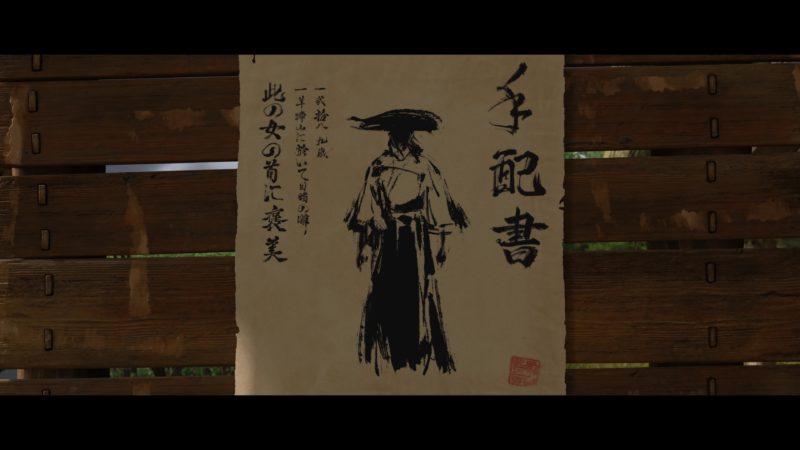 手配書
一弐拾八九歳
一羊蹄山に於いて
此の女の首に褒美